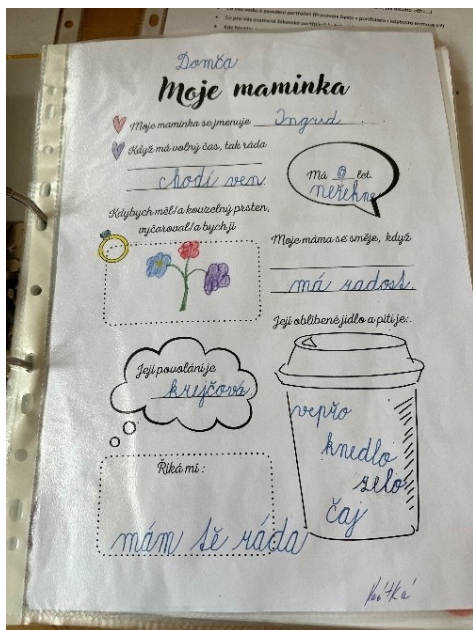 Domča
Moje maminka
Moje maminka se jmenuje Ingrid
Když má volný čas, tak ráda
chodí ven
Má 9 let.
neřekne
Kdybych měl/a kouzelný prsten,
vyčaroval/a bych jí
Moje máma se směje, když
má radost
Její oblíbené jídlo a pití je:
Její povolání je
krejčová
vepřo
knedlo
zelo
čaj
Říká mi :
mám tě ráda